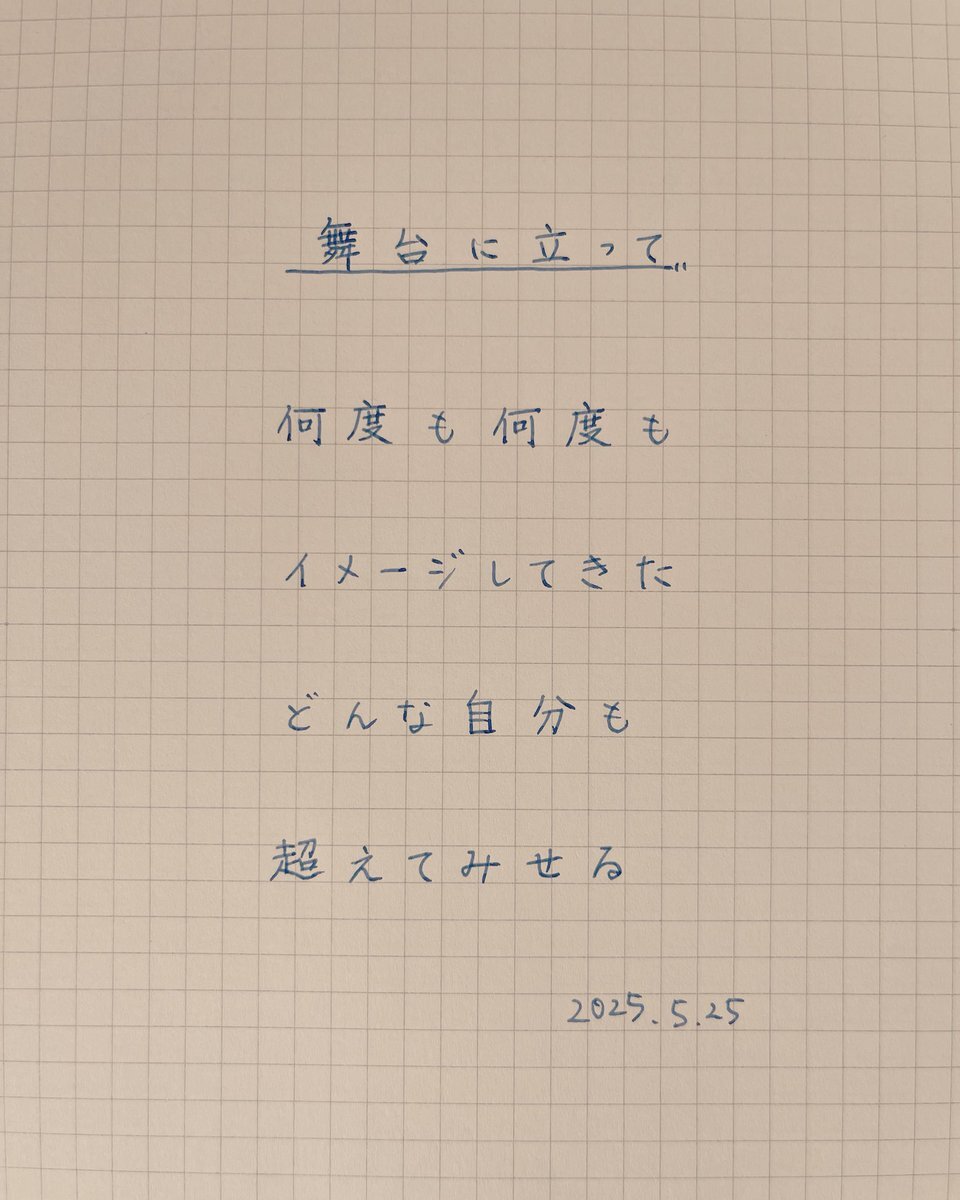 舞台に立って
何度も何度も
イメージしてきた
どんな自分も
超えてみせる
2025.5.25